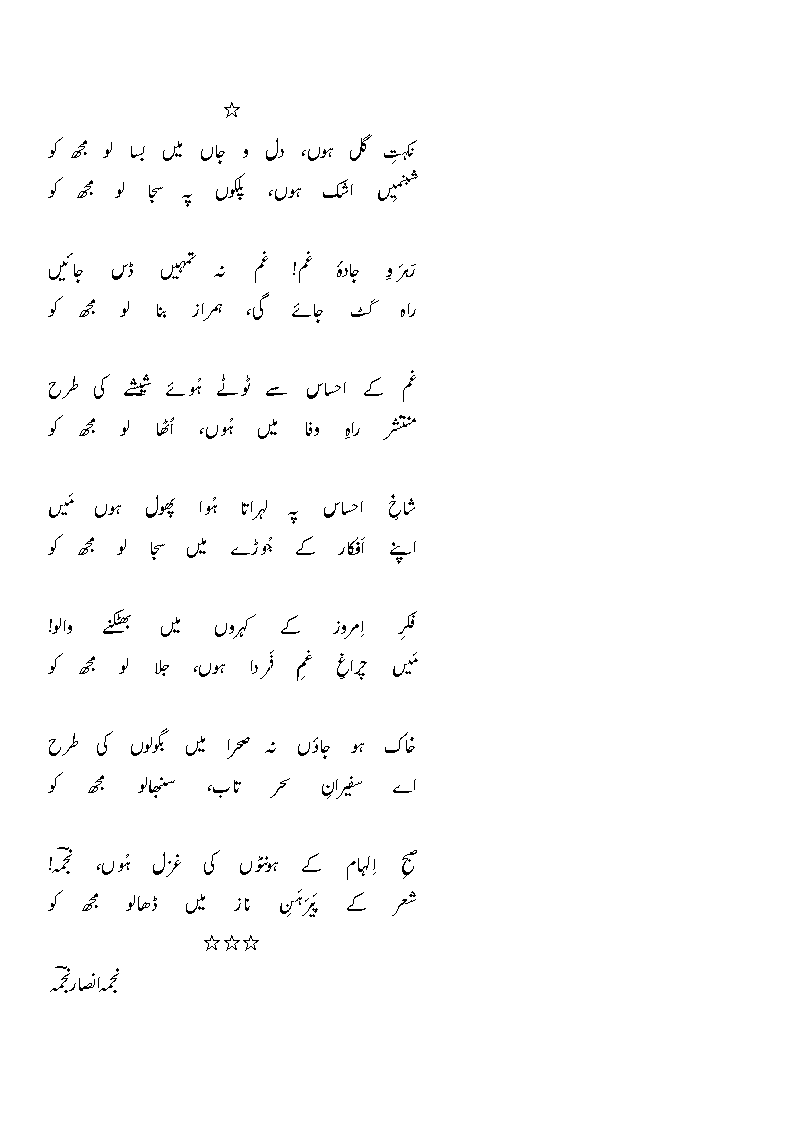 ☆
نکہتِ گل ہوں، دل و جاں میں بسا لو مجھ کو
شبنمیں اشک ہوں، پلکوں پہ سجا لو مجھ کو
رَہرَوِ جادۂ غم! غم نہ تمہیں ڈس جائیں
راہ کٹ جائے گی، ہمراز بنا لو مجھ کو
غم کے احساس سے ٹوٹے ہُوئے شیشے کی طرح
منتشر راہِ وفا میں ہُوں، اُٹھا لو مجھ کو
شاخِ احساس پہ لہراتا ہُوا پھول ہوں مَیں
اپنے اَفکار کے جُوڑے میں سجا لو مجھ کو
فکرِ اِمروز کے کہروں میں بھٹکنے والو!
مَیں چراغِ غمِ فَردا ہوں، جلا لو مجھ کو
خاک ہو جاؤں نہ صحرا میں بگولوں کی طرح
اے سفیرانِ سحر تاب، سنبھالو مجھ کو
صبحِ اِلہام کے ہونٹوں کی غزل ہُوں، نجمہؔ!
شعر کے پَیرَہَنِ ناز میں ڈھالو مجھ کو
☆☆☆
نجمہ انصار نجمہؔ